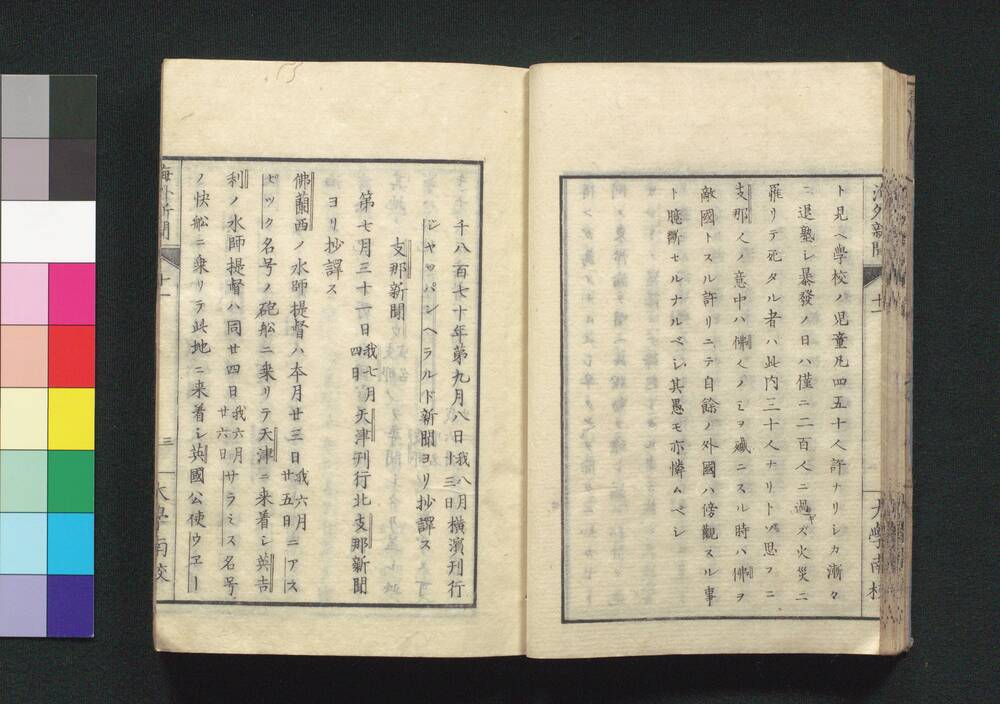 海外新聞
十一
大學南校
ト見ヘ學校ノ児童凡四五十人許ナリシカ漸々
ニ退塾シ暴發ノ日ハ僅ニ二百人ニ過キス火災ニ
罹リテ死タル者ハ此内三十人ナリトソ思フニ
支那人ノ意中ハ佛人ノミヲ殱ニスル時ハ佛ヲ
敵國トスル許リニテ自餘ノ外國ハ傍觀スル事
ト臆斷セルナルベシ其愚モ亦憐ムベシ
千八百七十年第九月八日我八月十三日橫濱刊行
ジャッパンヘラルド新聞ヨリ抄譯ス
支那新聞
第七月三十一日我七月四日天津刊行北支那新聞
ヨリ抄譯ス
佛蘭西ノ水師提督ハ本月廿三日我六月廿五日ニアス
ピック名号ノ砲舩ニ乘リテ天津ニ来着シ英吉
利ノ水師提督ハ同廿四日我六月廿六日サラミス名号
ノ快舩ニ乘リテ此地ニ来着シ英國公使ウエー
海外新聞
十一
三
大學南校